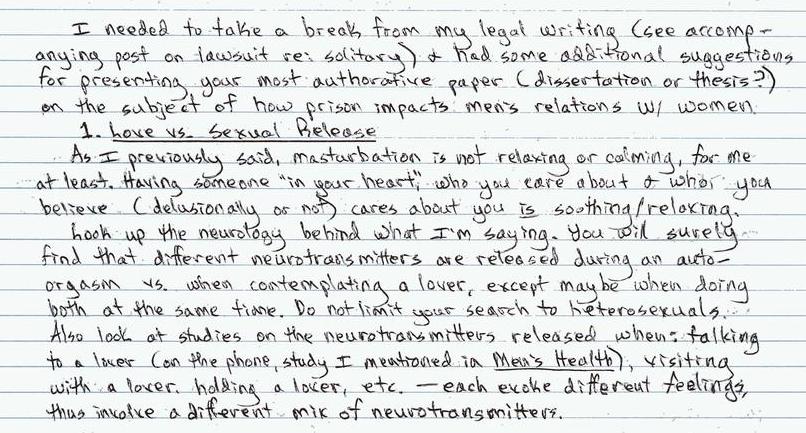 I needed to take a break from my legal writing (see accomp-
anying post on lawsuit re: solitary) & had some additional suggestions
for presenting your most authorative paper (dissertation or thesis?)
on the subject of how prison impacts men's relations w/ women.
1. Love vs. Sexual Release
As I previously said, masturbation is not relaxing or calming, for me
at least. Having someone "in your heart", who you care about & whor you
believe (delusionally or not) cares about you is soothing/relaxing.
Look up the neurology behind what I'm saying. You wil surely
find that different neurotransmitters are released during an auto-
orgasm vs. when contemplating a lover, except maybe when doing
both at the same time. Do not limit your search to heterosexuals.
Also look at studies on the neurotransmitters released when: talking
to a lover (on the phone, study I mentioned in Men's Health), visiting
with a lover, holding a lover, etc. — each evoke different feelings,
thus involve a different mix of neurotransmitters.